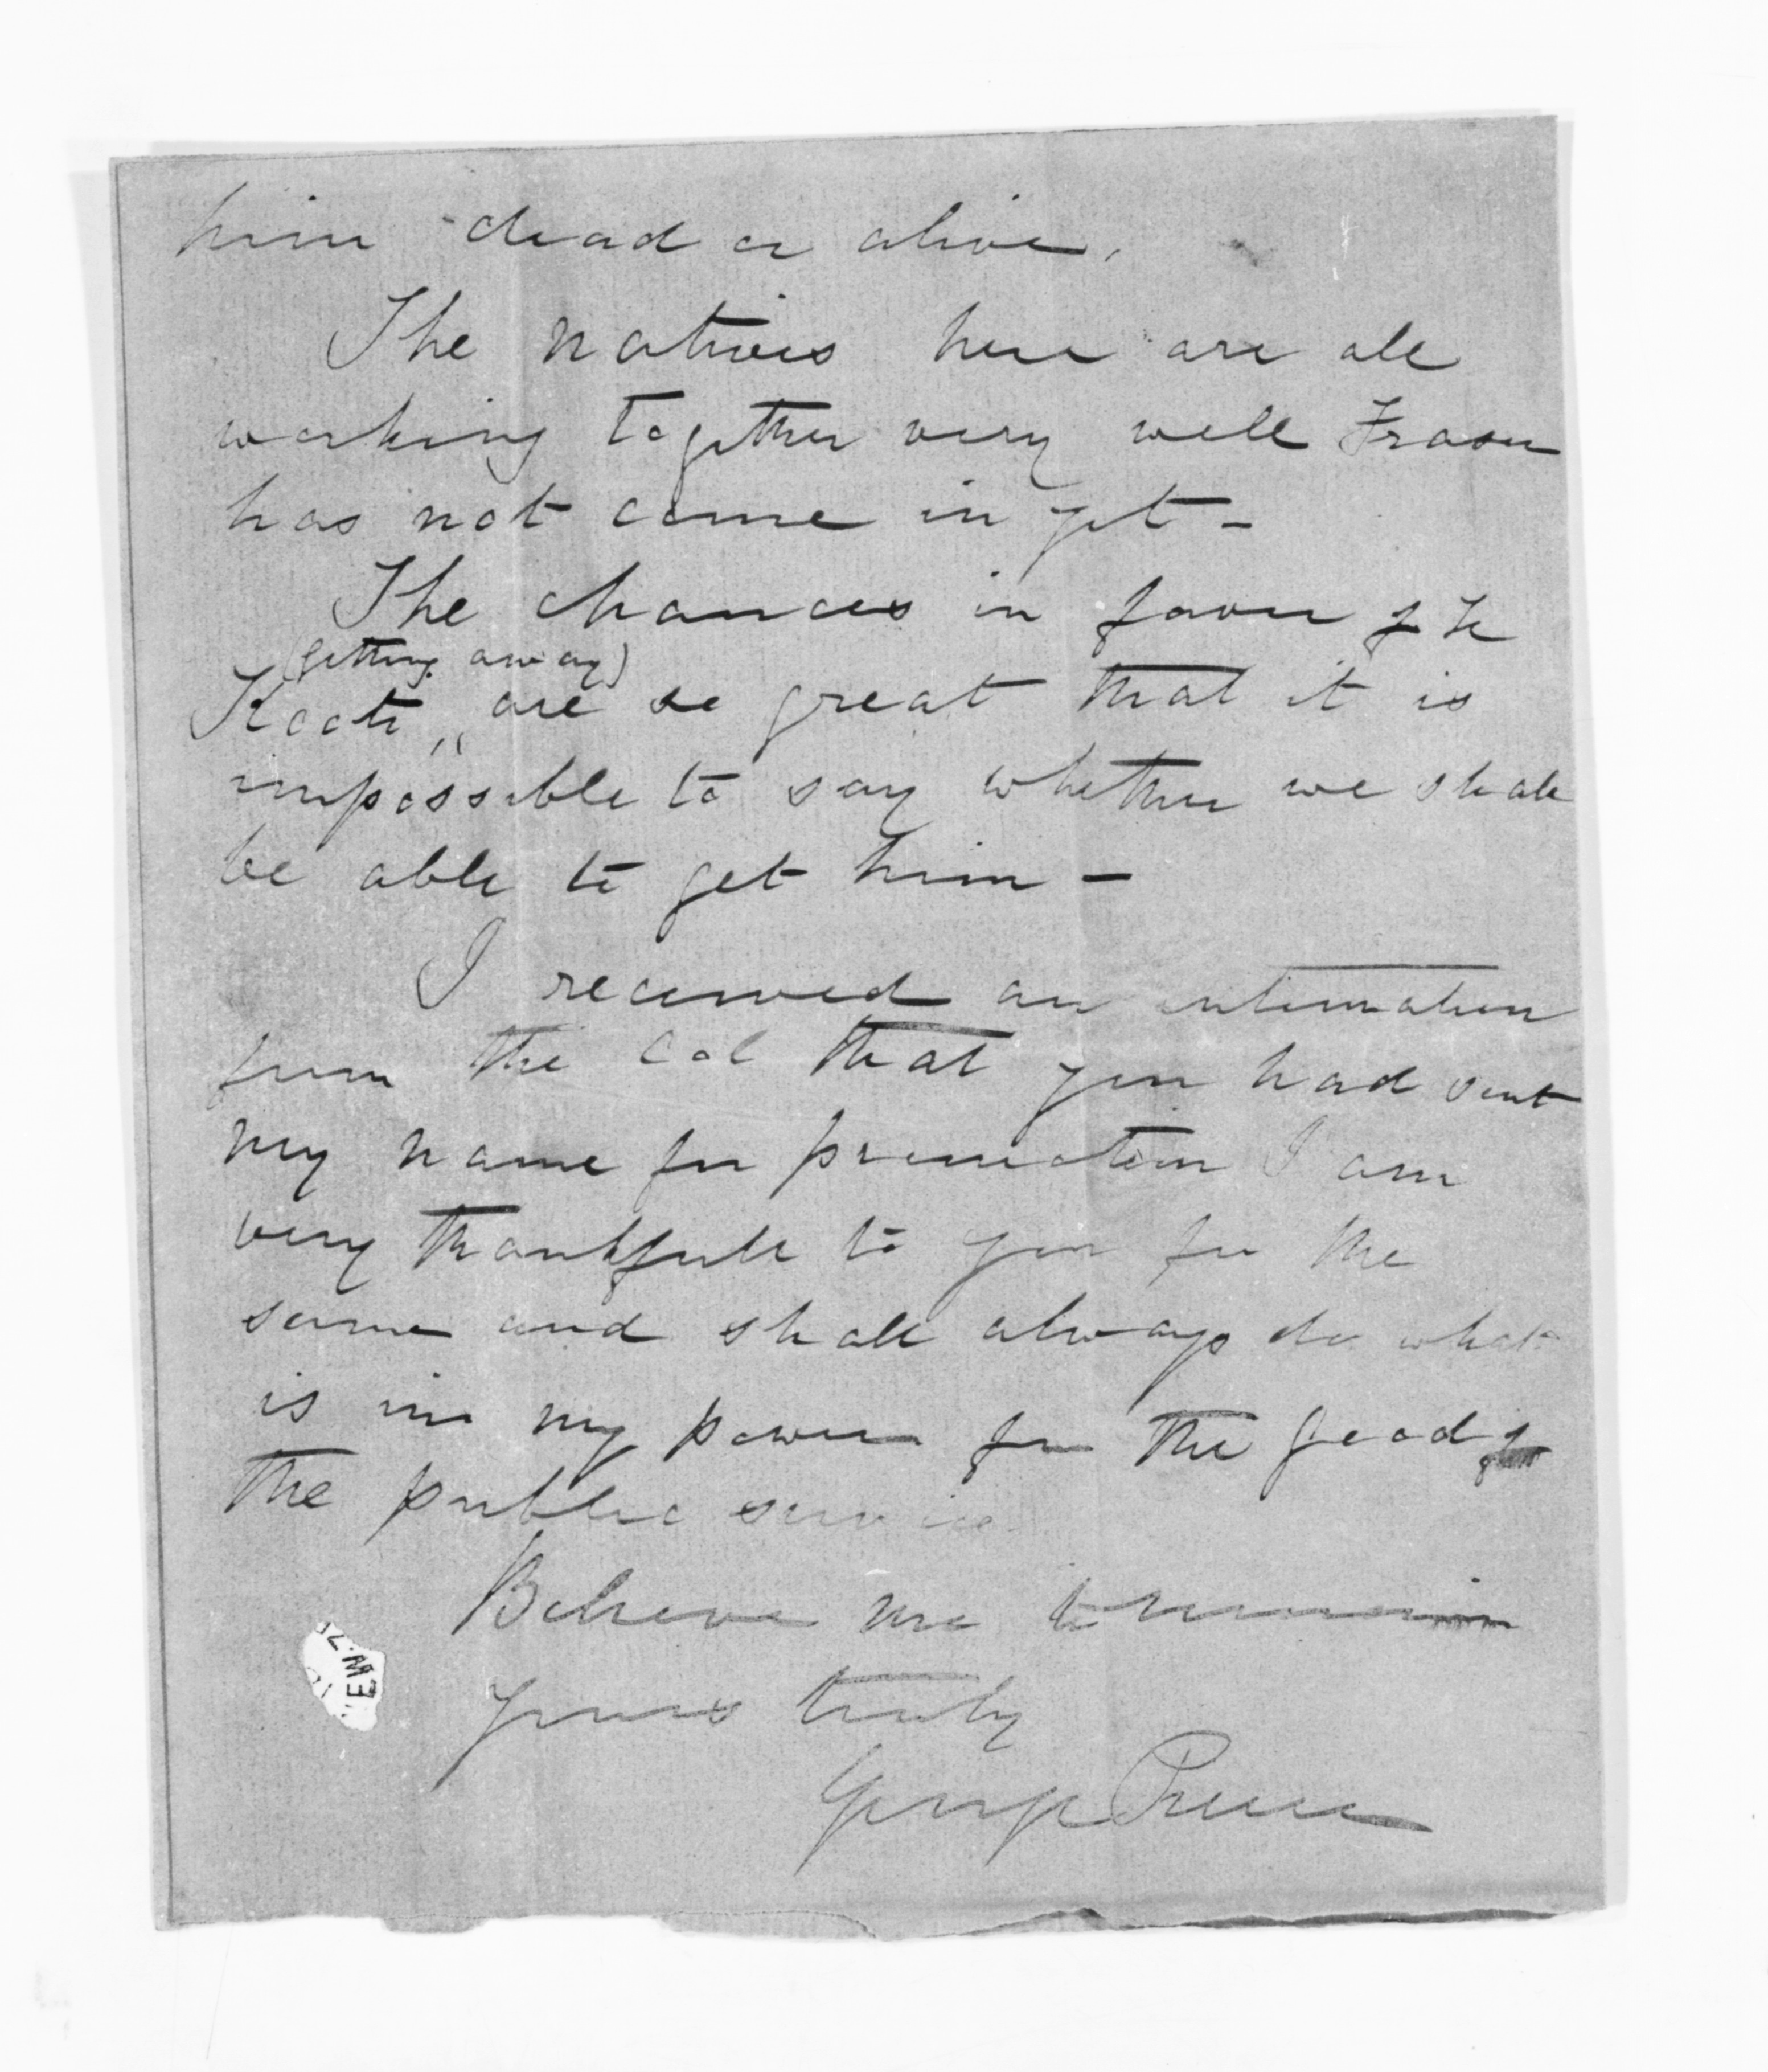 him dead or alive.
The natives here are all
working together very well Fraser
has not come in yet -
The chances in favor of Te
(getting away)
Kooti are so great that it is
impossible to say whether we shall
be able to get him -
I received an intimation
from the Col that you had sent
my name for promotion I am
very thankfull to you for the
same and shall always do what
is in my power for the good of
the public service
Believe me to remain
yours truly
George Preece